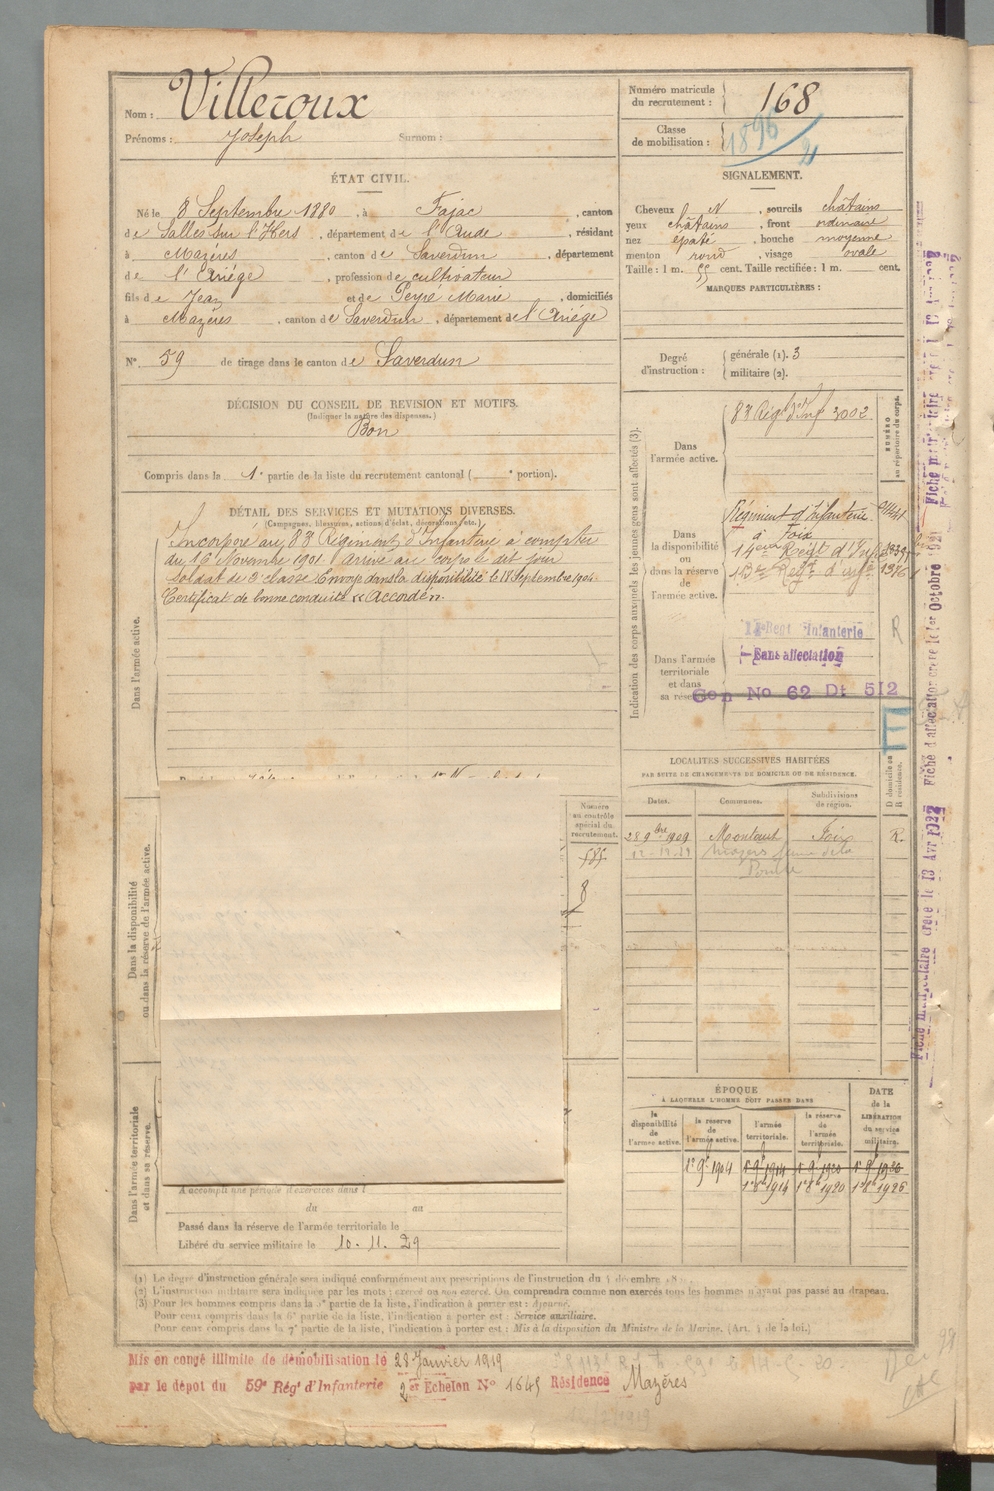 Nom : Villeroux
Prénoms : Joseph Surnom :
ÉTAT CIVIL.
Né le 8 Septembre 1880, à Fajac, canton
de Salles sur l'Hers, département de l'Aude, résidant
à Mazères, canton de Saverdun, département
de l'Ariège, profession de cultivateur
fils de Jean et de Peyré Marie, domiciliés
à Mazères, canton de Saverdun, département de l'Ariège
N° 59 de tirage dans le canton de Saverdun
DÉCISION DU CONSEIL DE REVISION ET MOTIFS.
(Indiquer la nature des dispenses.)
Bon
Compris dans la 1e partie de la liste du recrutement cantonal ( e portion).
DÉTAIL DES SERVICES ET MUTATIONS DIVERSES.
(Campagnes, blessures, actions d'éclat, décorations, etc.)
Dans l'armée active.
Incorporé au 83e Régiment d'Infanterie à compter
du 16 Novembre 1901 arrivé au corps le dit jour
soldat de 2e classe Envoyé dans la disponibilité le 18 Septembre 1904
Certificat de bonne conduite "Accordé".
Dans la disponibilité
ou dans la réserve de l'armée active.
Dans l'armée territoriale
et dans sa réserve.
A accompli une période d'exercices dans l
du au
Passé dans la réserve de l'armée territoriale le
Libéré du service militaire le 10. 11. 29
Numéro
au contrôle
spécial du
recrutement.
585
8
Numéro matricule
du recrutement : 168
Classe
de mobilisation : 1896
SIGNALEMENT.
Cheveux N, sourcils châtains
yeux châtains, front ordinaire
nez épaté, bouche moyenne
menton rond, visage ovale
Taille : 1 m. 55 cent. Taille rectifiée : 1 m. cent.
MARQUES PARTICULIÈRES :
Degré
d'instruction :
générale (1). 3
militaire (2).
Indication des corps auxquels les jeunes gens sont affectés (3).
NUMÉRO
au répertoire du corps.
Dans
l'armée active.
83e Régt d'Inf 3002
Dans
la disponibilité
ou
dans la réserve
de
l'armée active.
Régiment d'Infanterie
à Foix
Régt d'Inf
1376
Dans l'armée
territoriale
et dans
sa réserve.
Regt Infanterie
Sans affectation
Gon No 62 Dt 512
R
LOCALITÉS SUCCESSIVES HABITÉES
PAR SUITE DE CHANGEMENTS DE DOMICILE OU DE RÉSIDENCE.
Dates. Communes. Subdivisions
de région. D domicile ou
R résidence.
28 9bre 1909 Montaut Foix R.
ÉPOQUE
À LAQUELLE L'HOMME DOIT PASSER DANS
la
disponibilité
de
l'armée active.
la réserve
de
l'armée active.
l'armée
territoriale.
la réserve
de
l'armée
territoriale.
DATE
de la
LIBÉRATION
du service
militaire.
1er 9bre 1904 1er 9bre 1914 1er 9bre 1920 1er 9bre 1930
1er 8bre 1914 1er 8bre 1920 1er 8bre 1926
(1) Le degré d'instruction générale sera indiqué conformément aux prescriptions de l'instruction du 4 décembre
(2) L'instruction militaire sera indiquée par les mots : exercé ou non exercé. On comprendra comme non exercés tous les hommes n'ayant pas passé au drapeau.
(3) Pour les hommes compris dans la 5e partie de la liste, l'indication à porter est : Ajourné.
Pour ceux compris dans la 6e partie de la liste, l'indication à porter est : Service auxiliaire.
Pour ceux compris dans la 7e partie de la liste, l'indication à porter est : Mis à la disposition du Ministre de la Marine. (Art. 4 de la loi.)
Mis en congé illimité de démobilisation le 28 Janvier 1919
par le dépôt du 59e Rég' d'Infanterie 2er Echelon N° 1645 Résidence Mazères
Fiche matriculaire créée le 13 Avr 1922
Fiche d'affectation créée le 1er Octobre 1921